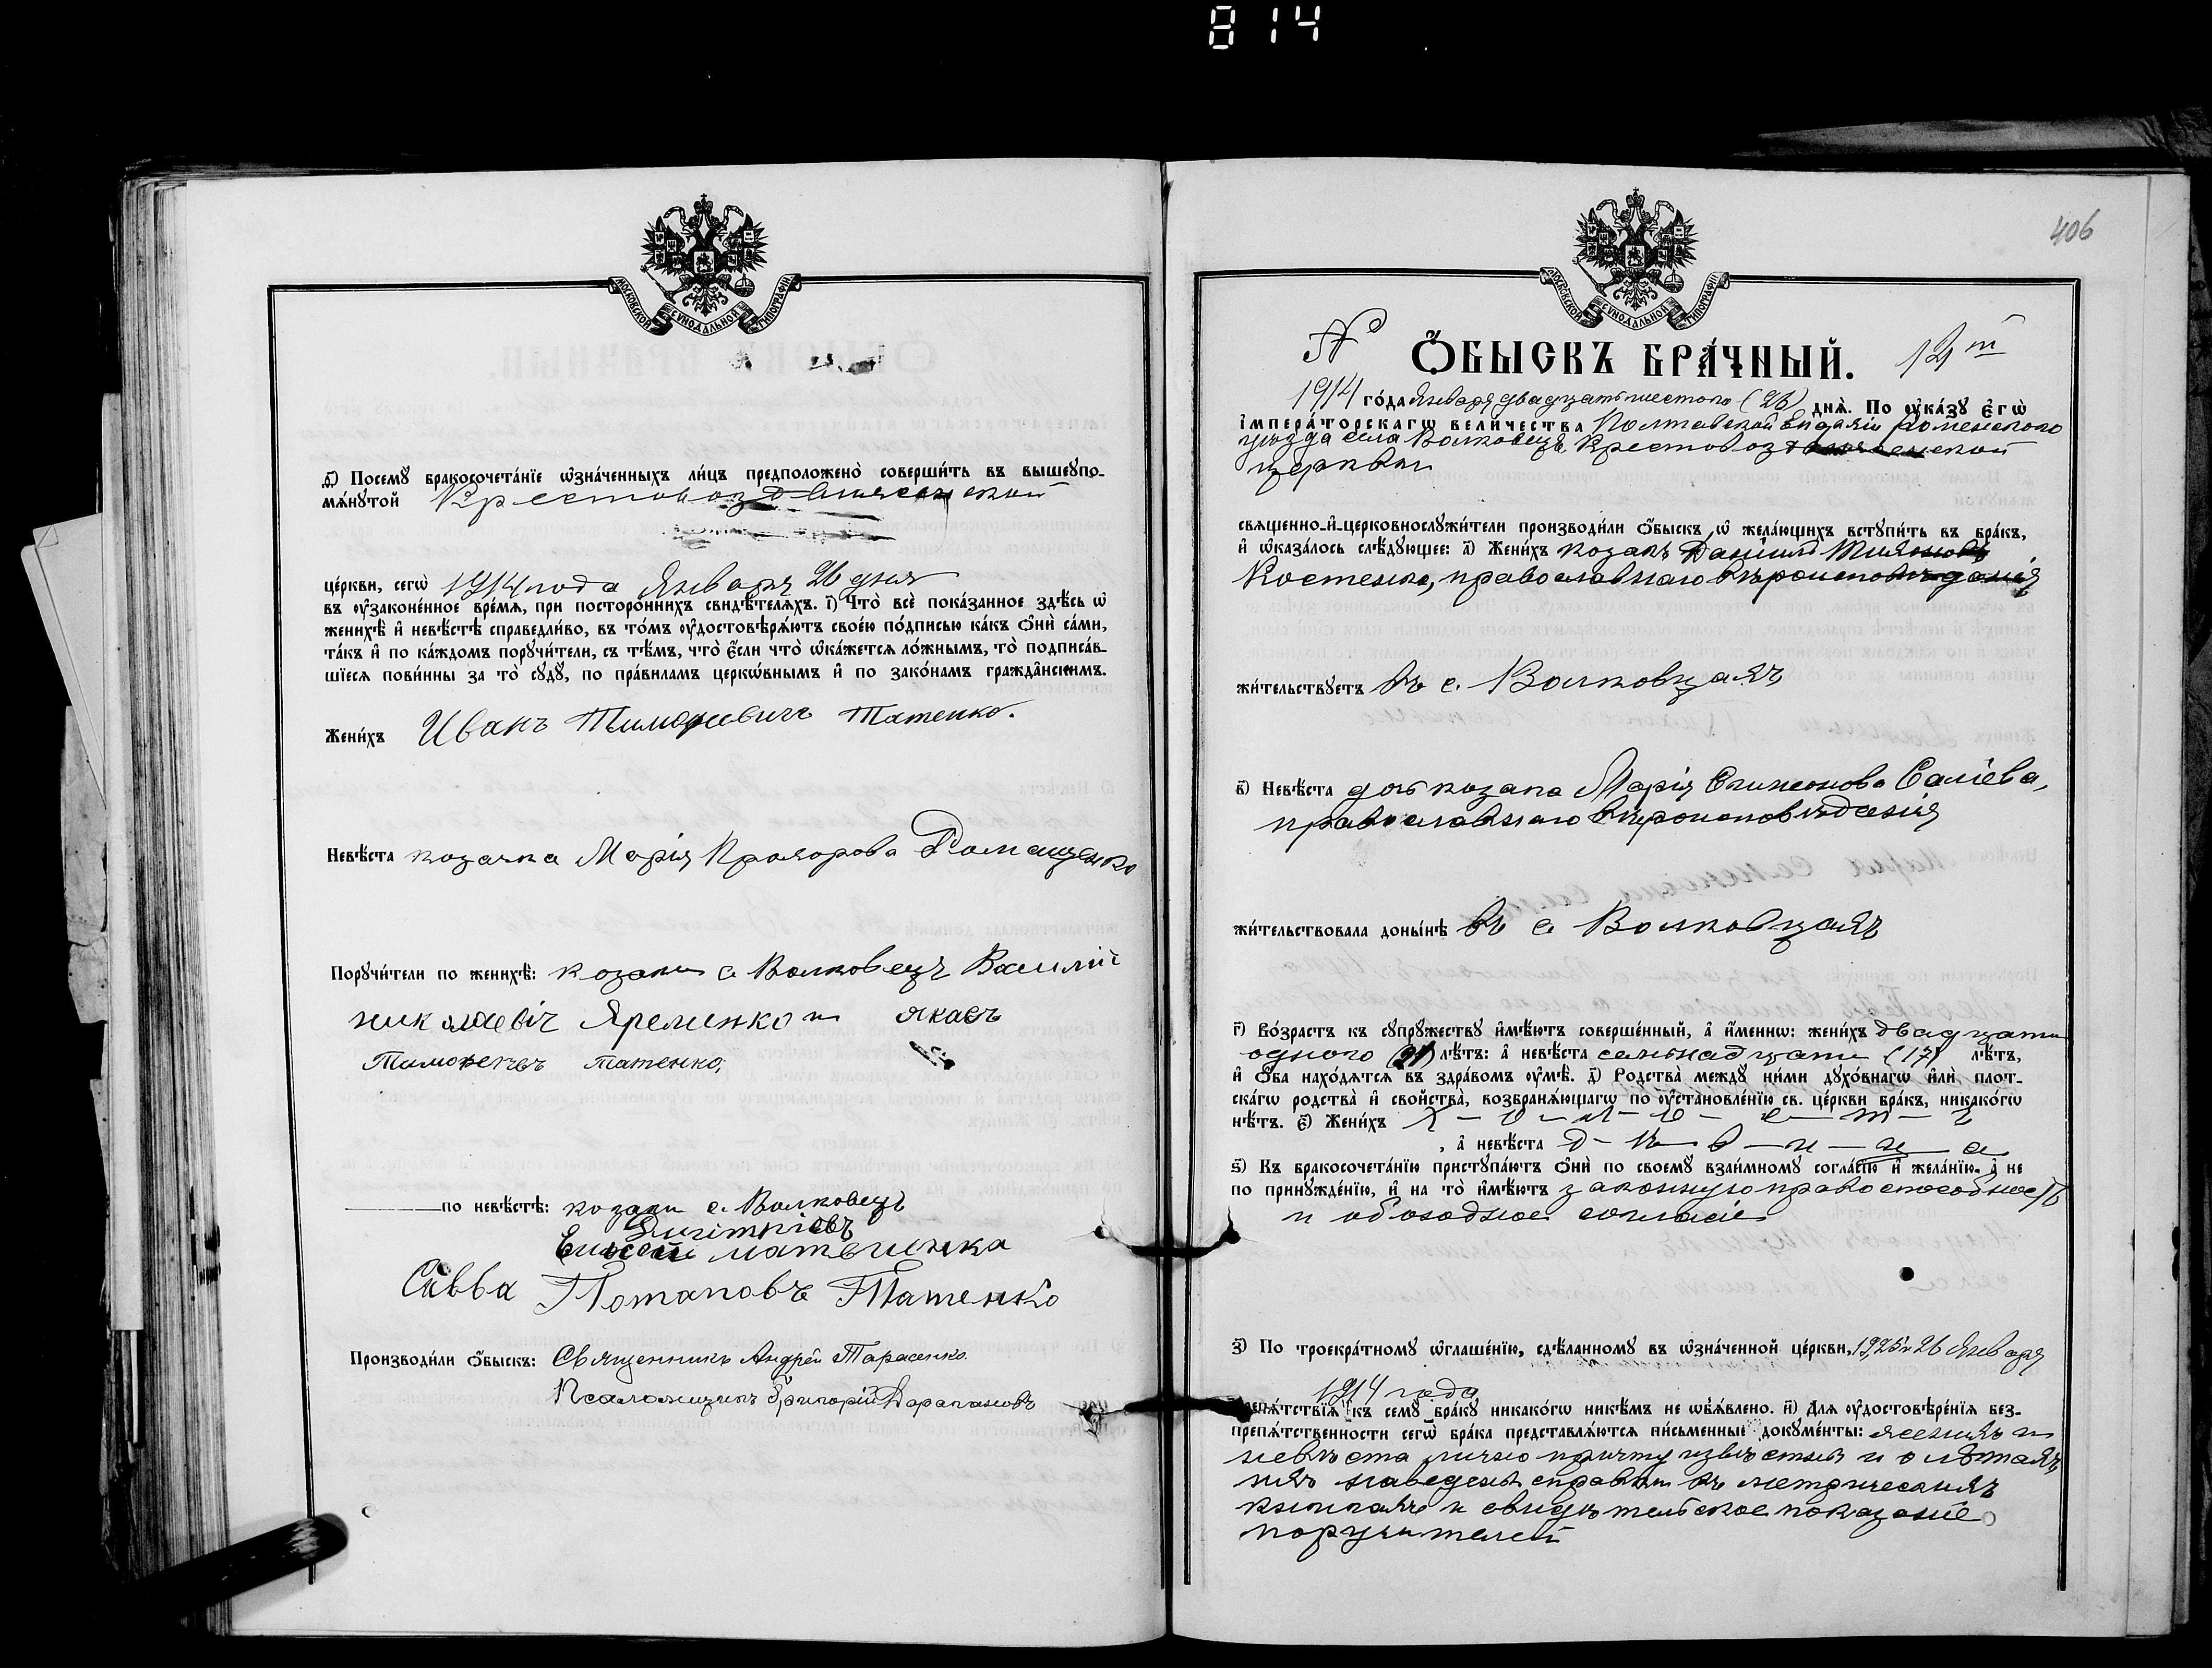 814
МОСКОВСКОЙ СѴНОДАЛЬНОЙ ТИПОГРАФІИ
ѳ҃) Посемꙋ̀ бракосочета́нїе ѡ҆зна́ченныхъ ли́цъ предположено̀ соверши́ть въ вышеꙋпо-
мѧ́нꙋтой Крестовоздвиженской
це́ркви, сегѡ̀ 1914 года Января 26 дня
въ ᲂу҆зако́ненное вре́мѧ, при посторо́ннихъ свидѣ́телѧхъ. і҃) Что̀ всѐ пока́занное здѣ́сь ѡ҆
женихѣ̀ и҆ невѣ́стѣ справедли́во, въ то́мъ ᲂу҆достовѣрѧ́ютъ свое́ю по́дписью ка́къ Ѻ҆нѝ са́ми,
та́къ и҆ по ка́ждомъ порꙋчи́тели, съ тѣ́мъ, что̀ є҆́сли что̀ ѡ҆ка́жетсѧ ло́жнымъ, то̀ подписа́в-
шїесѧ пови́нны за то̀ сꙋдꙋ̀, по пра́виламъ церкѡ́внымъ и҆ по зако́намъ гражда̂нскимъ.
Жени́хъ Иванъ Тимофеевичъ Татенко.
Невѣ́ста козачка Марія Прохорова Ромащенко
Порꙋчи́тели по женихѣ̀: козаки с. Волковецъ Василій
николаевіч Яременко и якаовъ
Тимофеевъ татенко,
по невѣ́стѣ: козаки с. Волковецъ
Димітріевъ
Елисей матвиенка
Савва Потаповъ Татенко
Производи́ли ѻ҆́быскъ: Священникъ Андрей Тарасенко.
Псаломщикъ Григорій
406
МОСКОВСКОЙ СѴНОДАЛЬНОЙ ТИПОГРАФІИ
N Ѻ҆́БЫСКЪ БРА́ЧНЫЙ. 12й
1914 го́да Января двадцать шестого (26) днѧ̀. По ᲂу҆ка́зꙋ Є҆гѡ̀
І҆мпера́торскагѡ вели́чества Полтавской Епархіи Роменского
уезда села Волковецъ Крестовоздвиженской
церкви
свѧщенно-и҆-церковнослꙋжи́тели производи́ли ѻ҆́быскъ ѡ҆ жела́ющихъ встꙋпи́ть въ бра́къ,
и҆ ѡ҆каза́лось слѣ́дꙋющее: а҃) Жени́хъ козакъ Даніилъ Тихоновъ
Костенко, православнаго вѣроисповѣданія
жи́тельствꙋетъ въ с. Волковцахъ
в҃) Невѣ́ста дочь козака Марія Симеонова Саліева,
православнаго вѣроисповѣданія
жи́тельствовала доны́нѣ въ с Волковцахъ
г҃) Во́зрастъ къ сꙋпрꙋ́жествꙋ и҆мѣ́ютъ соверше́нный, а҆ и҆́меннѡ: жени́хъ двадцати
одного (21) лѣ́тъ: а҆ невѣ́ста семьнадцати (17) лѣ́тъ,
и҆ ѻ҆́ба нахо́дѧтсѧ въ здра́вомъ ᲂу҆мѣ̀. д҃) Родства̀ междꙋ ни́ми дꙋхо́внагѡ и҆лѝ плот-
ска́гѡ родства̀ и҆ сво́йства, возбранѧ́ющагѡ по ᲂу҆становле́нїю св. це́ркви бра́къ, никако́гѡ
нѣ́тъ. є҃) Жени́хъ х - о - л - о - с - т - ъ
, а҆ невѣ́ста д - ѣ - в - и - ц - а
ѕ҃) Къ бракосочета́нїю пристꙋпа́ютъ Ѻ҆нѝ по своемꙋ̀ взаи́мномꙋ согла́сїю и҆ жела́нїю, а҆ не
по принꙋжде́нїю, и҆ на то̀ и҆мѣ́ютъ законную правоспособность
и обоюдное согласіе
з҃) По троекра́тномꙋ ѡ҆глаше́нїю, сдѣ́ланномꙋ въ ѡ҆зна́ченной це́ркви, 19, 25 и 26 Января
1914 года
препѧ́тствїѧ къ семꙋ̀ бра́кꙋ никако́гѡ никѣ́мъ не ѡ҆б̾ѧ́влено. и҃) Длѧ ᲂу҆достовѣ́ренїѧ без-
препѧ́тственности сегѡ̀ бра́ка представлѧ́ютсѧ пи́сьменные докꙋме́нты: женихъ и
невѣста лично причту извѣстны и о лѣтахъ
ихъ наведены справки въ метрическихъ
книгахъ и свидѣтельское показаніе
поручителей